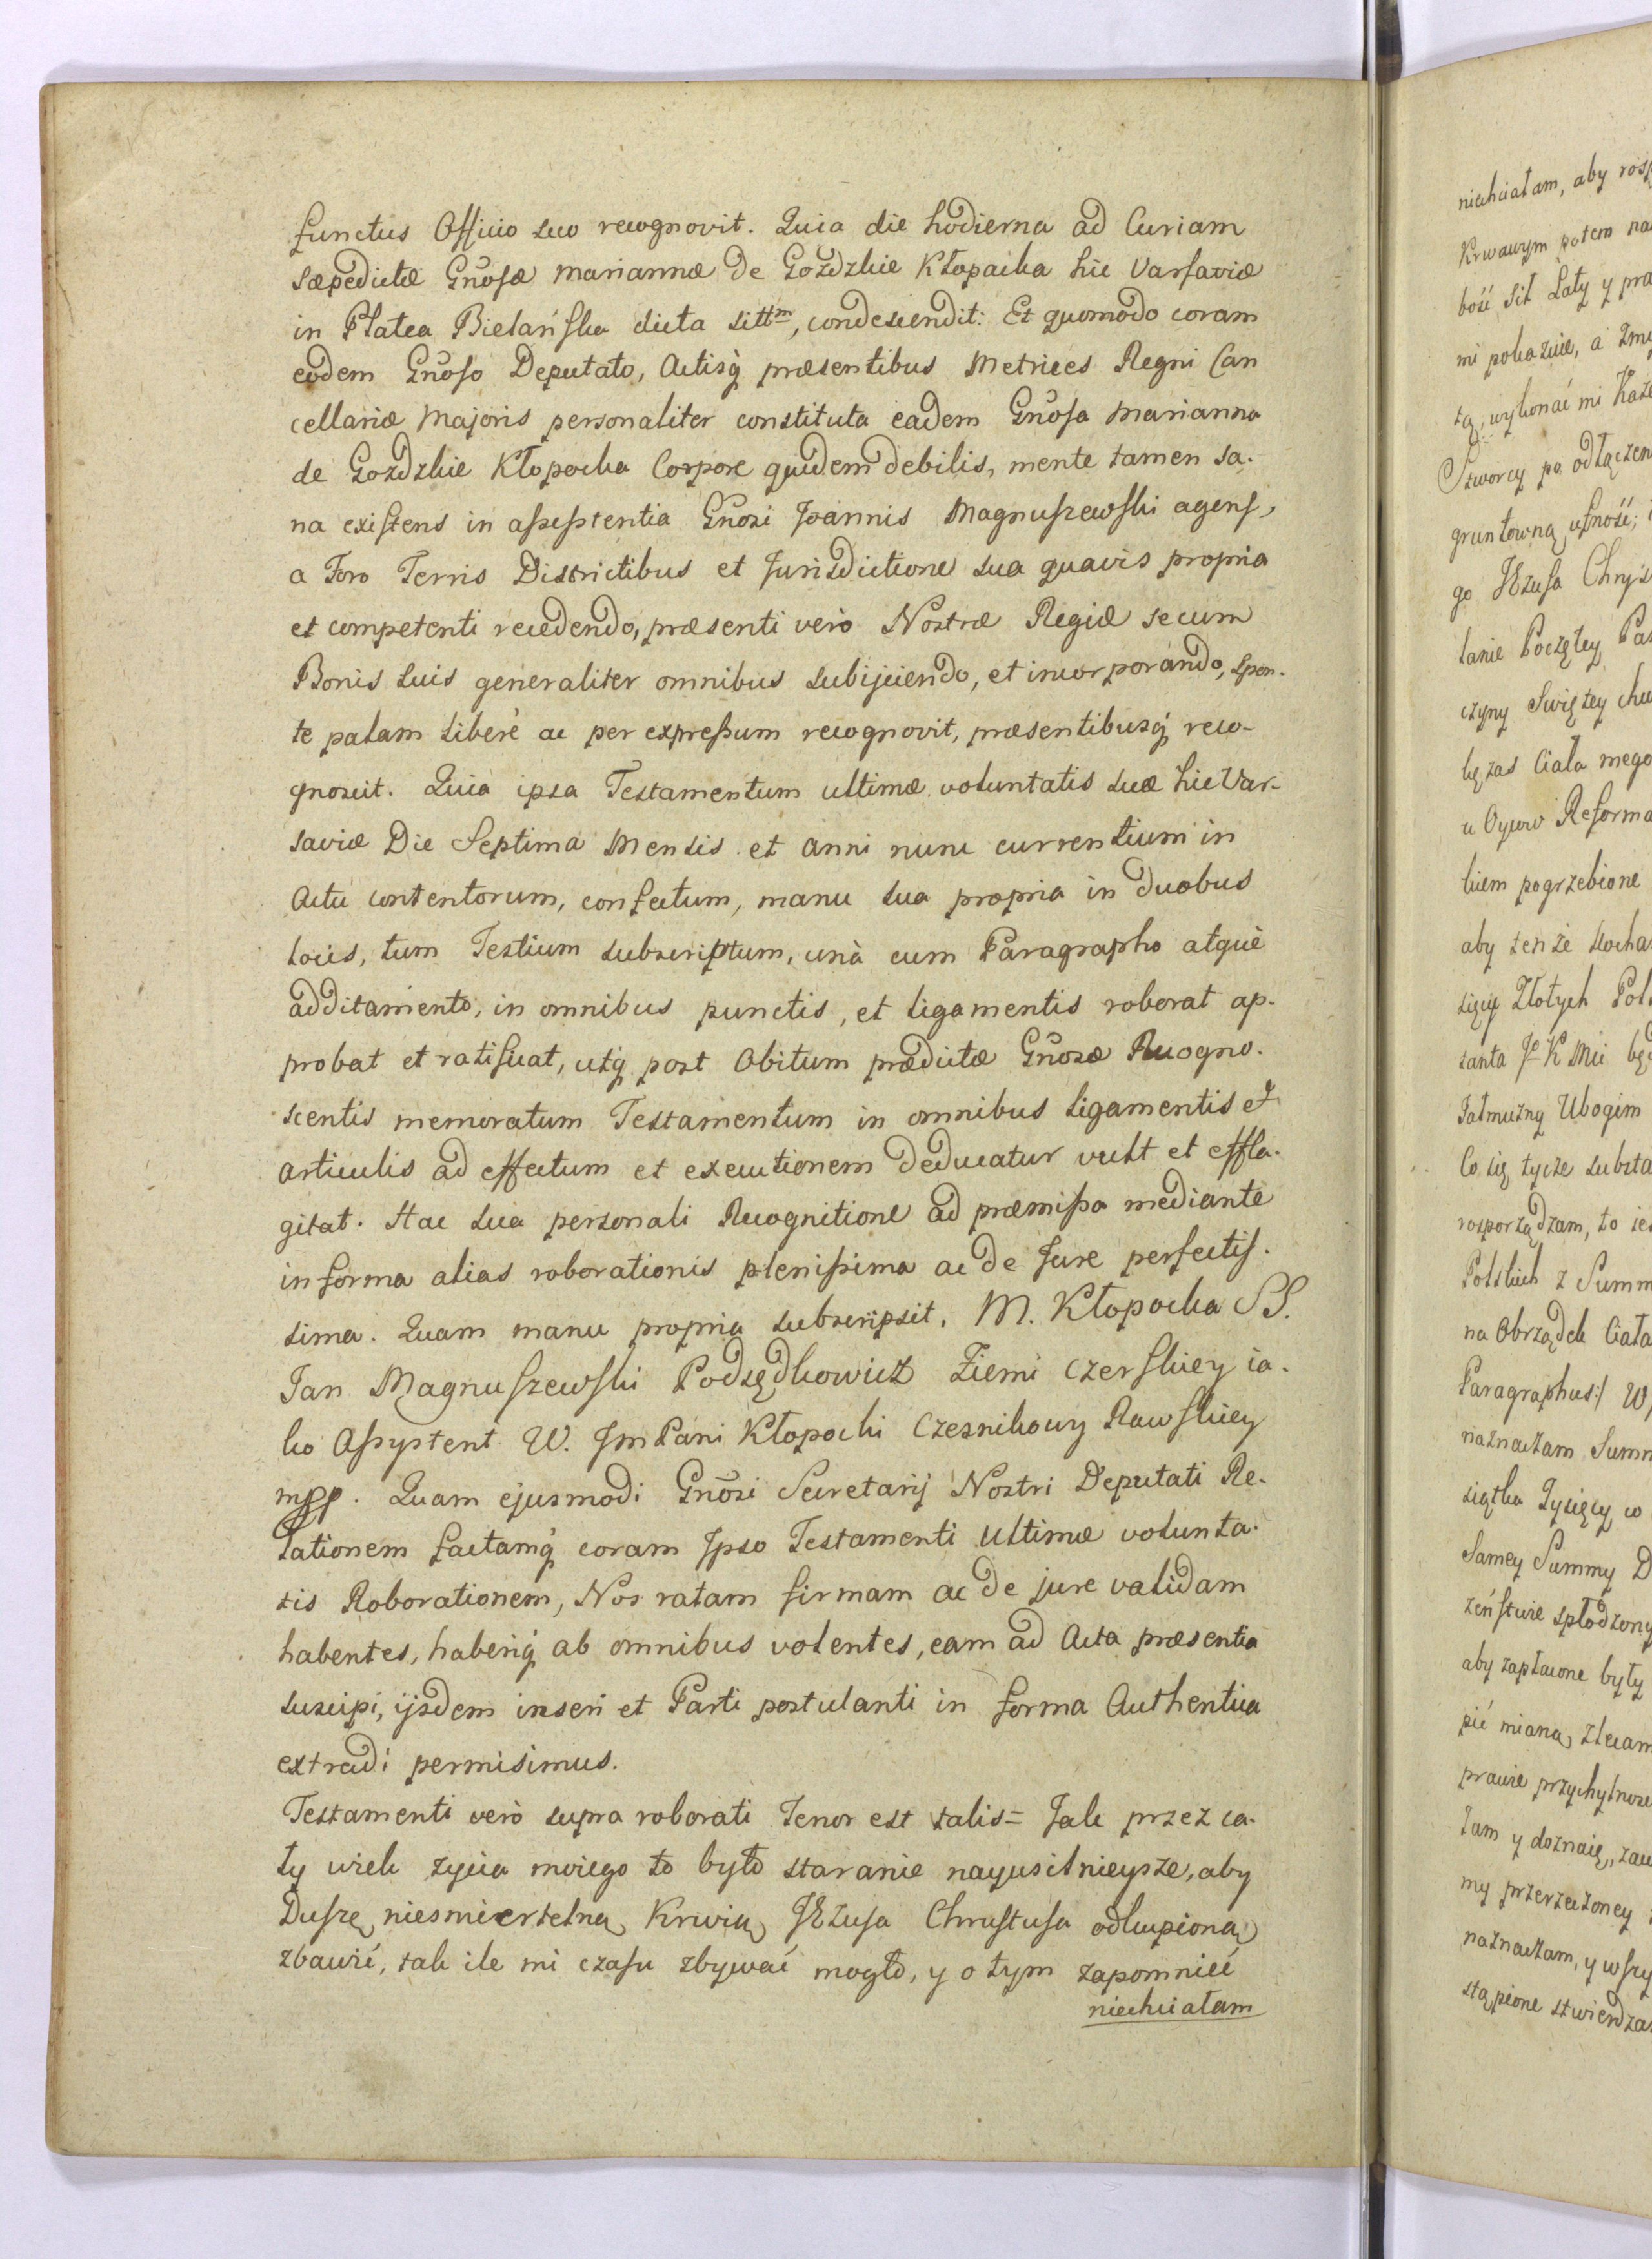 functus Officio suo recognovit. Quia die hodierna ad Curiam
sæpedictæ Gnosæ Mariannæ de Gozdzkie Kłopacka hic Varsaviæ
in Platea Bielańska dicta sittm, condescendit: Et quomodo coram
eodem Gnoso Deputato, Actisq́ præsentibus Metrices Regni Can
cellariæ Majoris personaliter constituta eadem Gnosa Marianna
de Gozdzkie Kłopocka Corpore quidem debilis, mente tamen sa-
na existens in assistentia Gnosi Joannis Magnuszewski agens,
a Foro Terris Districtibus et Jurisdictione sua quavis propria
et competenti recedendo, præsenti verò Nostræ Regiæ se cum
Bonis suis generaliter omnibus subijciendo, et incorporando, spon-
te palam liberè ac per expressum recognovit, præsentibusq́ reco-
gnoscit. Quia ipsa Testamentum ultimæ voluntatis suæ hic Var-
saviæ Die Septima Mensis et anni nunc currentium in
Actu contentorum, confectum, manu sua propria in duobus
locis, tum Testium subscriptum, unà cum Paragrapho atquè
additamento, in omnibus punctis, et ligamentis roborat ap-
probat et ratificat, utq́ post Obitum prædictæ Gnosæ Recogno-
scentis memoratum Testamentum in omnibus ligamentis et
articulis ad effectum et executionem deducatur vult et effla-
gitat. Hac sua personali Recognitione ad præmissa mediante
in forma alias roborationis plenissima ac de Jure perfectis-
sima. Quam manu propria subscripsit. M. Kłopocka SS.
Jan Magnuszewski Podsędkowicz Ziemi Czerskiey ia-
ko Assystent W. Jm Pani Kłopocki Czesnikowy Rawskiey
mpp. Quam ejusmodi Gnosi Secretarij Nostri Deputati Re-
lationem factamq́ coram Ipso Testamenti Ultimæ volunta-
tis Roborationem, Nos ratam firmam ac de jure validam
habentes, haberiq́ ab omnibus volentes, eam ad Acta præsentia
suscipi, ijsdem inseri et Parti postulanti in forma Authentica
extradi permisimus.
Testamenti verò supra roborati Tenor est talis= Jak przez ca-
ły wiek zycia moiego to było staranie nayusilnieysze, aby
Duszę niesmiertelną Krwią JEzusa Chrustusa odkupioną
zbawić, tak ile mi czasu zbywać mogło, y o tym zapomnieć
niechciałam
niechciałam, aby
Krwawym potem
bość sił Laty y
mi pokazuie, a
tą, wykonać mi
Stworcy po
gruntowną ufność;
go JEzusa
łanie Poczętey
czyny Swiętey
Ciała mego
u Oycow
kiem pogrzebione
aby tenże
Złotych
Jałmużny Ubogim
Co się tycze
rosporządzam, to
Polskich z
na Obrządek Ciała
Paragraphus:/
naznaczam
Tysięcy
Samey Summy
spłodzony
aby zapłacone były
mianą,
prawie
y doznaię,
my przerzeczoney
naznaczam, y